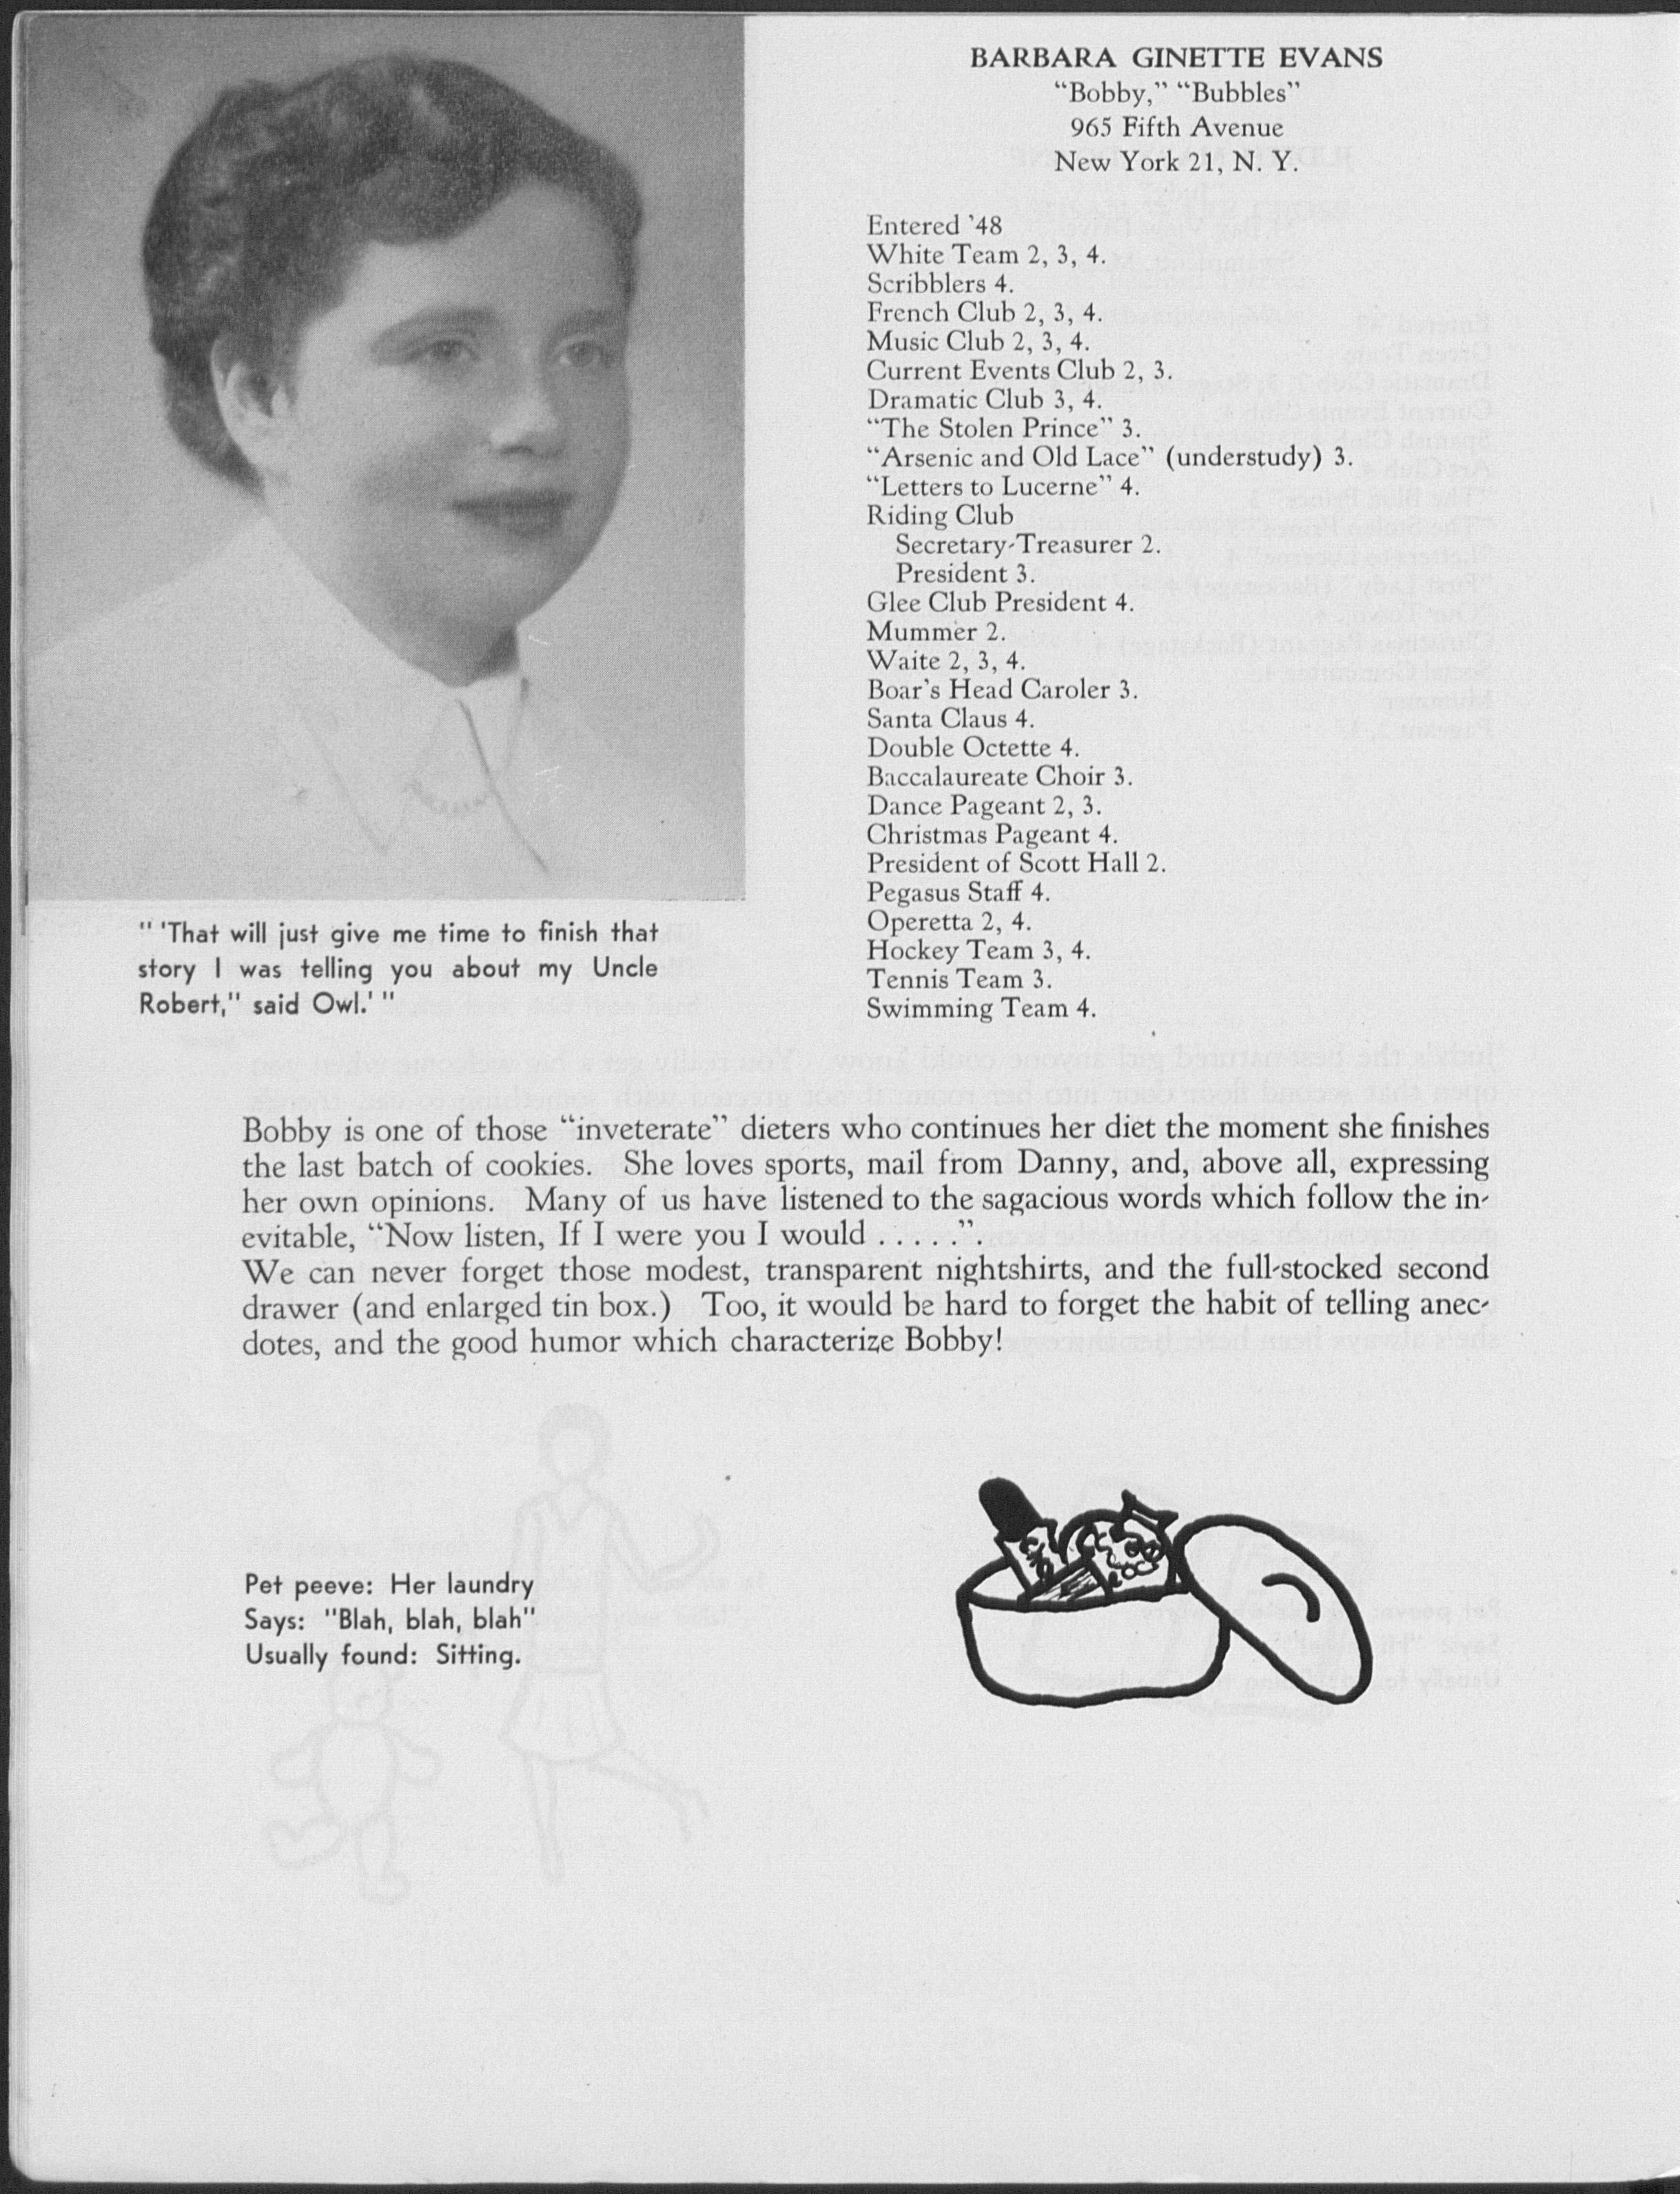 BARBARA GINETTE EVANS
“Bobby,” “Bubbles”
965 Fifth Avenue
New York 21, N. Y.
Entered ’48
White Team 2, 3, 4.
Scribblers 4.
French Club 2, 3, 4.
Music Club 2, 3, 4.
Current Events Club 2, 3.
Dramatic Club 3, 4.
“The Stolen Prince” 3.
“Arsenic and Old Lace” (understudy) 3.
“Letters to Lucerne” 4.
Riding Club
Secretary-Treasurer 2.
President 3.
Glee Club President 4.
Mummer 2.
Waite 2, 3, 4.
Boar’s Head Caroler 3.
Santa Claus 4.
Double Octette 4.
Baccalaureate Choir 3.
Dance Pageant 2, 3.
Christmas Pageant 4.
President of Scott Hall 2.
Pegasus Staff 4.
Operetta 2, 4.
Hockey Team 3, 4.
Tennis Team 3.
Swimming Team 4.
" 'That will just give me time to finish that
story I was telling you about my Uncle
Robert," said Owl.' "
Bobby is one of those “inveterate” dieters who continues her diet the moment she finishes
the last batch of cookies. She loves sports, mail from Danny, and, above all, expressing
her own opinions. Many of us have listened to the sagacious words which follow the in-
evitable, “Now listen, If I were you I would . . . . .”.
We can never forget those modest, transparent nightshirts, and the full-stocked second
drawer (and enlarged tin box.) Too, it would be hard to forget the habit of telling anec-
dotes, and the good humor which characterize Bobby!
Pet peeve: Her laundry
Says: "Blah, blah, blah"
Usually found: Sitting.